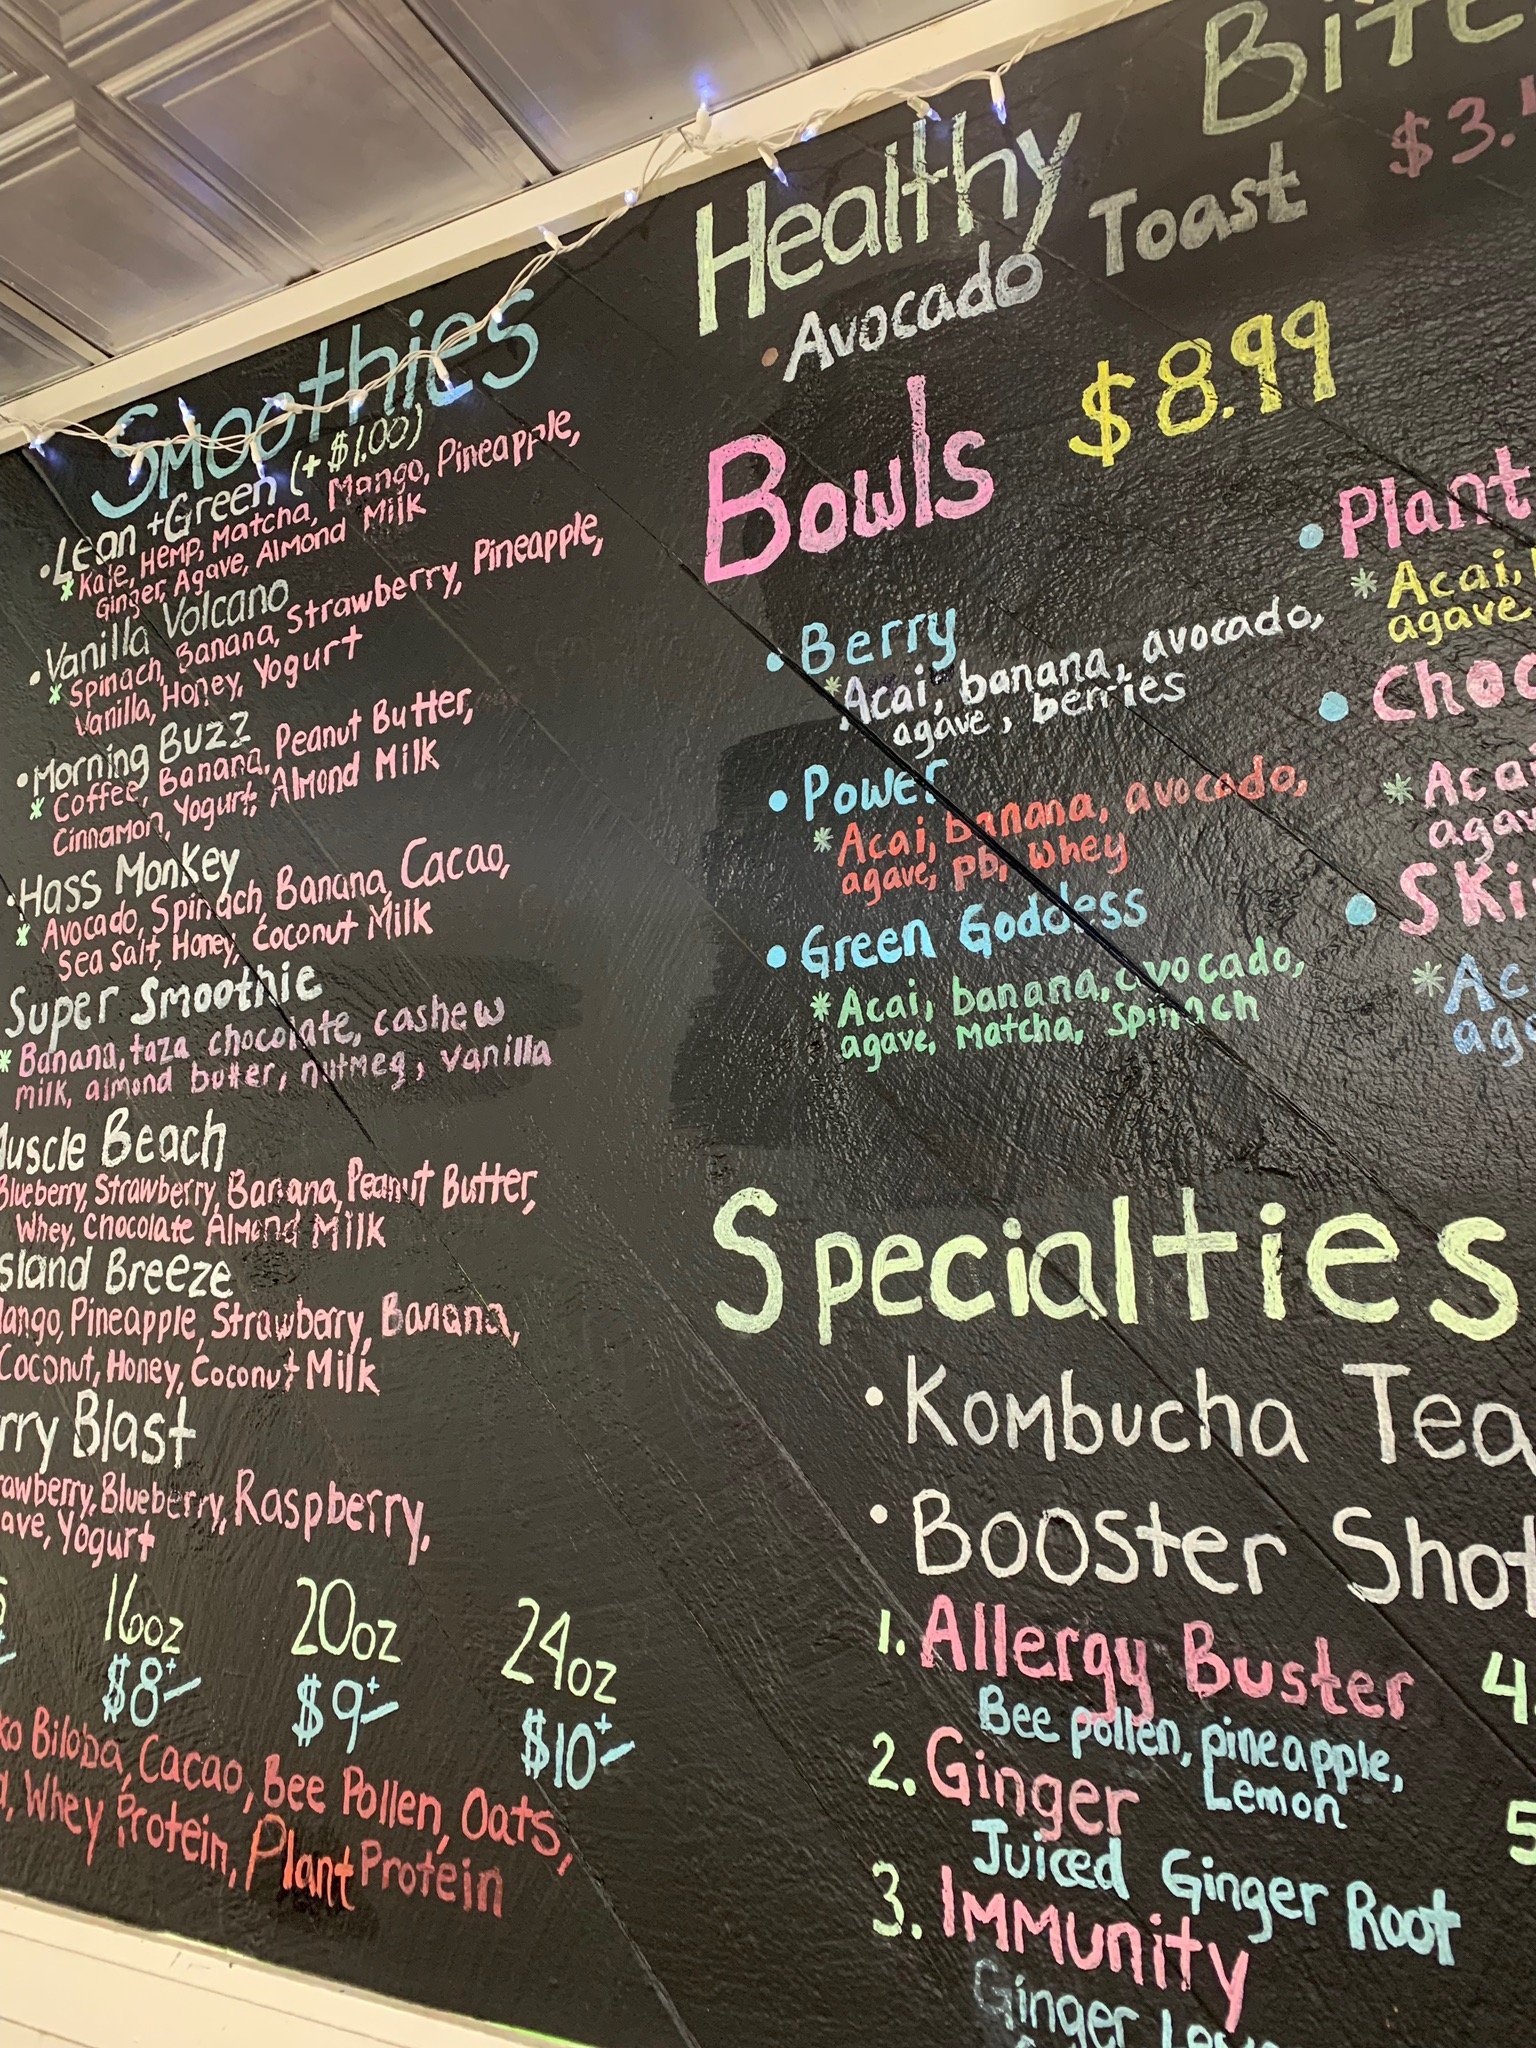 Smoothies
• Lean + Green (+ $1.00)
* Kale, Hemp, Matcha, Mango, Pineapple,
Ginger, Agave, Almond Milk
• Vanilla Volcano
* Spinach, Banana, Strawberry, Pineapple,
Vanilla, Honey, Yogurt
• Morning Buzz
* Coffee, Banana, Peanut Butter,
Cinnamon, Yogurt, Almond Milk
• Hass Monkey
* Avocado, Spinach, Banana, Cacao,
Sea Salt, Honey, Coconut Milk
Super Smoothie
* Banana, taza chocolate, cashew
milk, almond butter, nutmeg, vanilla
Muscle Beach
Blueberry, Strawberry, Banana, Peanut Butter,
Whey, Chocolate Almond Milk
Island Breeze
Mango, Pineapple, Strawberry, Banana,
Coconut, Honey, Coconut Milk
rry Blast
rawberry, Blueberry, Raspberry,
ave, Yogurt
16oz 20oz 24oz
$8+- $9+- $10+-
ko Biloba, Cacao, Bee Pollen, Oats,
Whey Protein, Plant Protein
Healthy Bite
• Avocado Toast $3.
Bowls $8.99
• Berry
* Acai, banana, avocado,
agave, berries
• Power
* Acai, banana, avocado,
agave, pb, whey
• Green Goddess
* Acai, banana, avocado,
agave, matcha, spinach
• Plant
* Acai,
agave
• Choc
* Aca
agav
• Ski
* Ac
aga
Specialties
• Kombucha Tea
• Booster Shot
1. Allergy Buster
Bee pollen, pineapple,
Lemon
2. Ginger
Juiced Ginger Root
3. Immunity
Ginger
4.
5